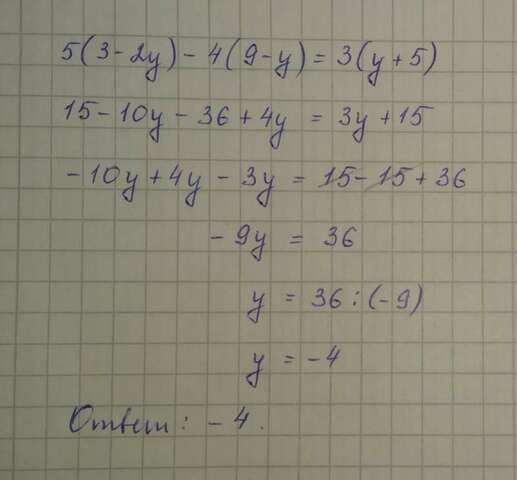 5(3-2y)-4(9-y)=3(y+5)
15-10y-36+4y=3y+15
-10y+4y-3y=15-15+36
-9y=36
y=36:(-9)
y=-4
Ответ: -4.